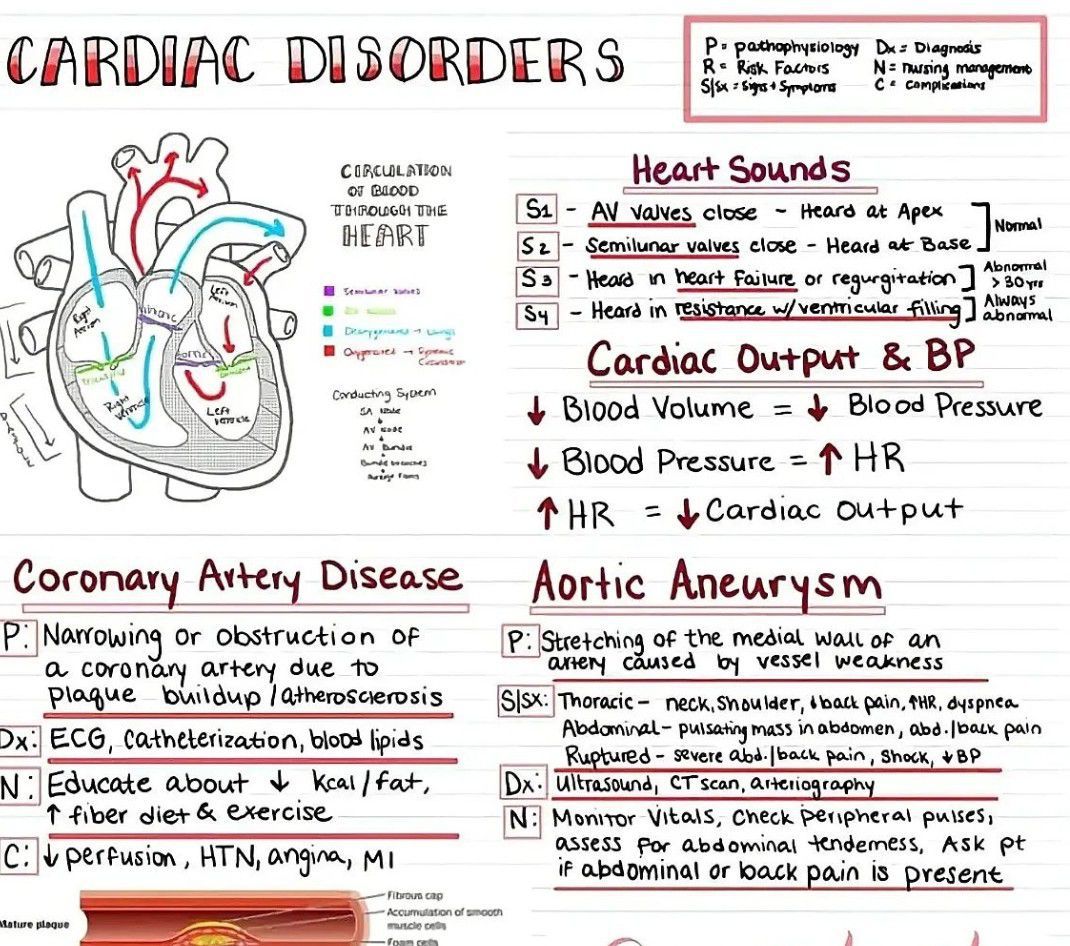 CARDIAC DISORDERS
P = pathophysiology Dx = Diagnosis
R = Risk Factors N = nursing management
S|sx = signs + Symptoms C = complications
CIRCULATION
OF BLOOD
THROUGH THE
HEART
Semilunar valves
Deoxygenated → Lungs
Oxygenated → Systemic
Circulation
Conducting System
SA Node
AV Node
AV Bundle
Bundle branches
Right
Atrium
Left
Atrium
Right
Ventricle
Left
Ventricle
Heart Sounds
S1 - AV valves close - Heard at Apex
S2 - Semilunar valves close - Heard at Base
Normal
S3 - Heard in heart failure or regurgitation
Abnormal
> 30 yrs
S4 - Heard in resistance w/ventricular filling
Always
abnormal
Cardiac Output & BP
↓ Blood Volume = ↓ Blood Pressure
↓ Blood Pressure = ↑ HR
↑ HR = ↓ Cardiac output
Coronary Artery Disease
P: Narrowing or obstruction of
a coronary artery due to
plaque buildup/atherosclerosis
Dx: ECG, Catheterization, blood lipids
N: Educate about ↓ kcal/fat,
↑ fiber diet & exercise
C: ↓ perfusion, HTN, angina, MI
Mature plaque
Fibrous cap
Accumulation of smooth
muscle cells
Foam cells
Aortic Aneurysm
P: Stretching of the medial wall of an
artery caused by vessel weakness
S|sx: Thoracic - neck, shoulder, ↓back pain, ↑HR, dyspnea
Abdominal - pulsating mass in abdomen, abd./back pain
Ruptured - severe abd./back pain, shock, ↓BP
Dx: Ultrasound, CT scan, arteriography
N: Monitor Vitals, Check peripheral pulses,
assess for abdominal tenderness, Ask pt
if abdominal or back pain is present